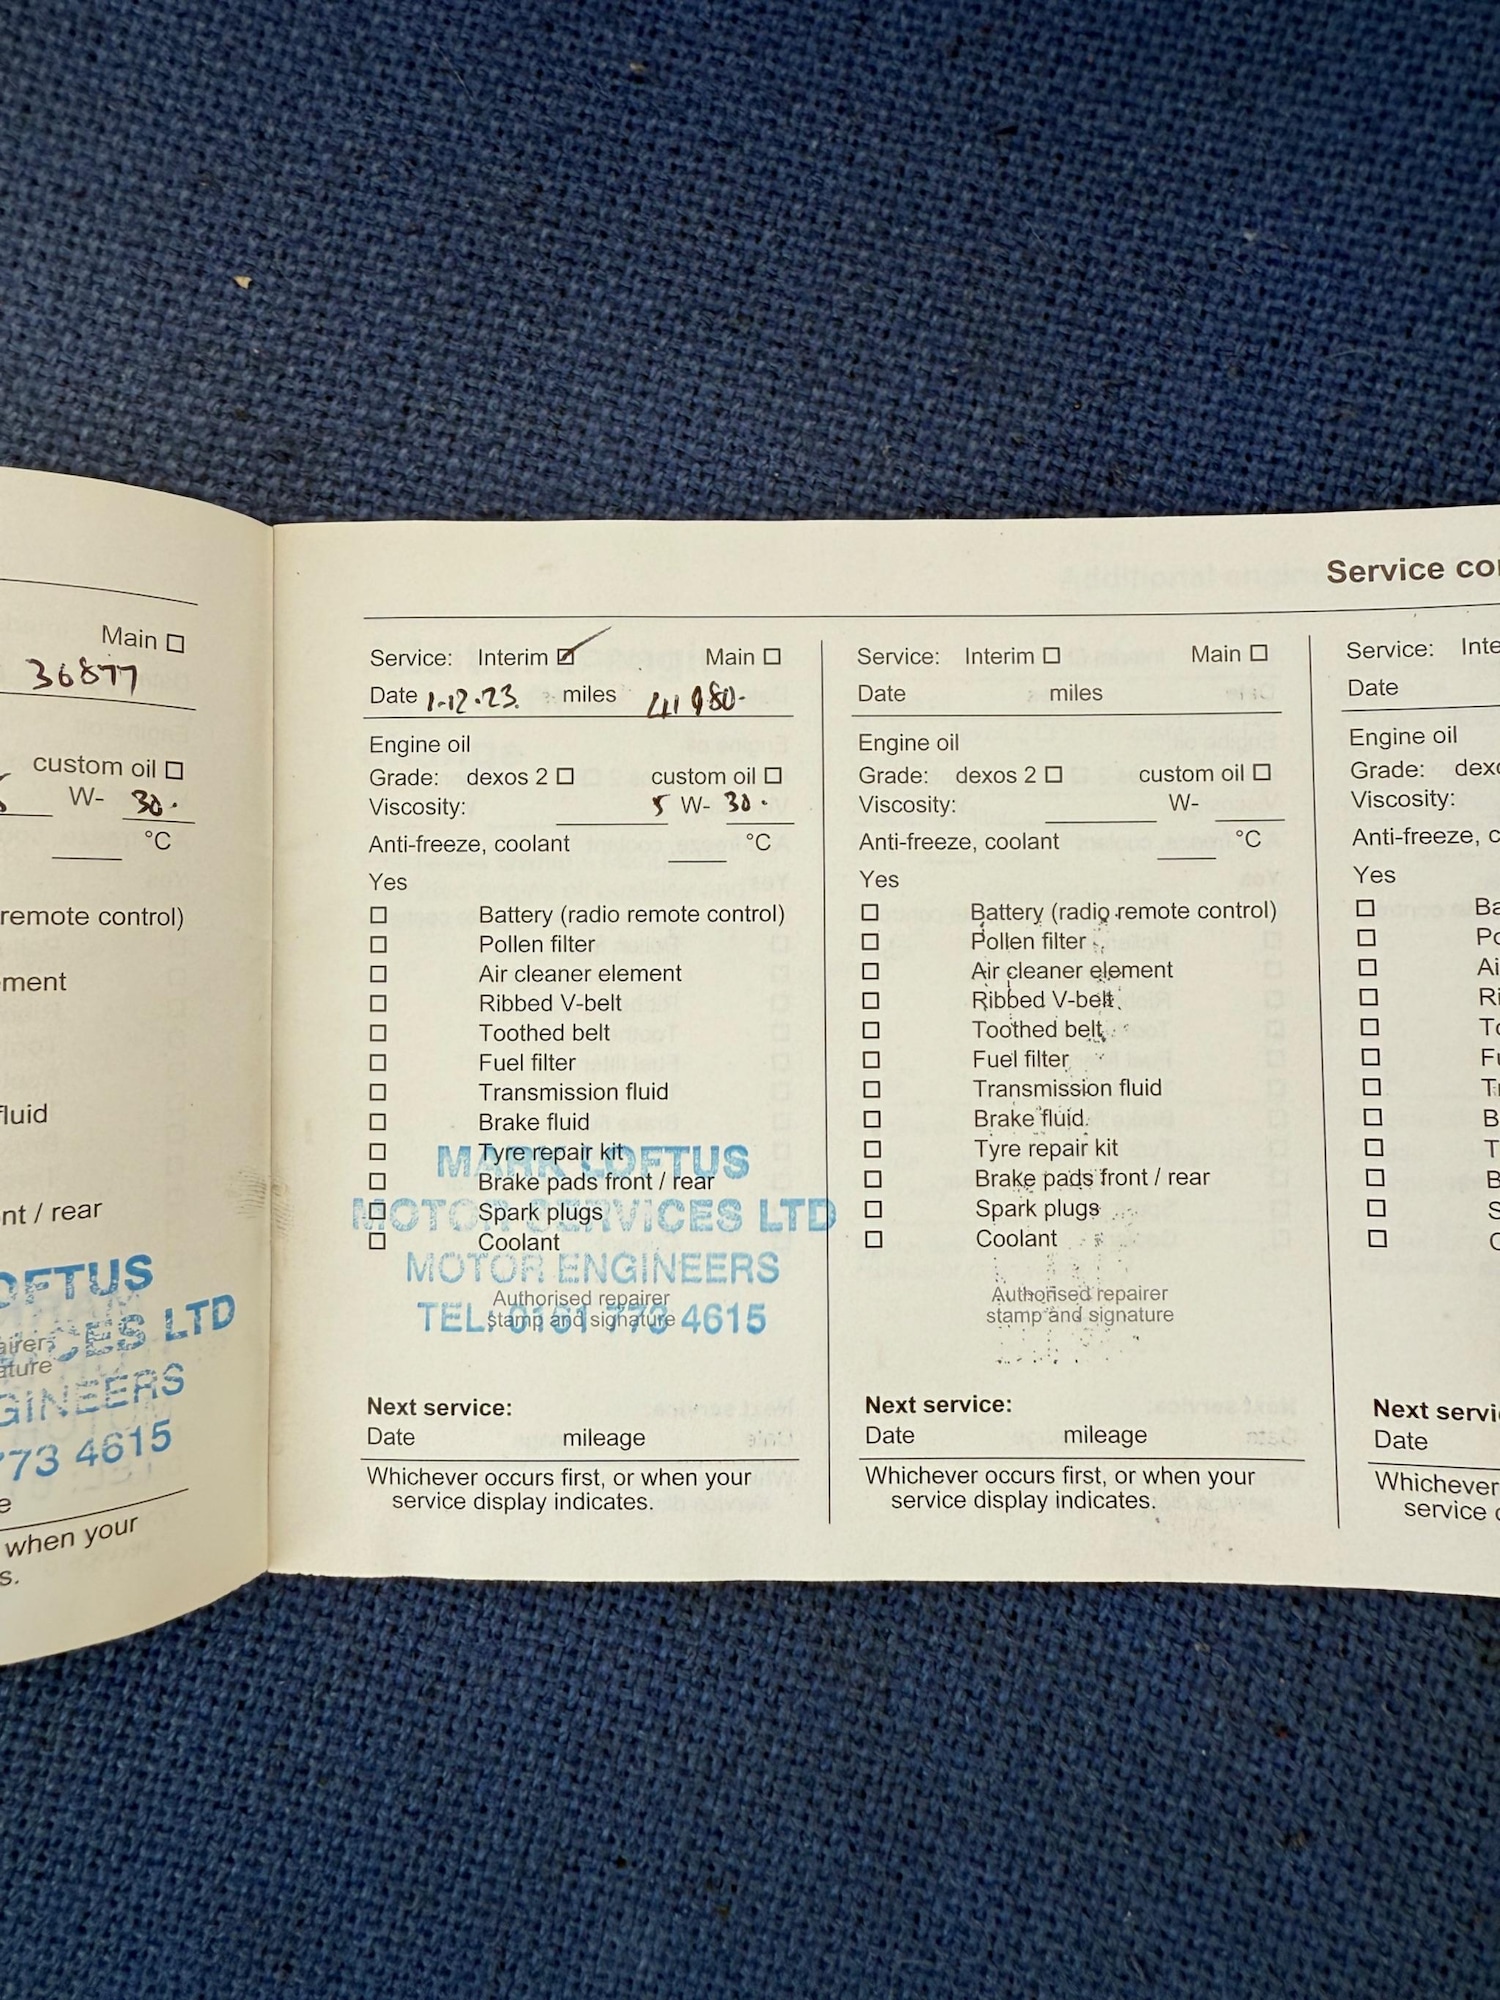 Main
36877
custom oil
W- 30.
°C
remote control)
ment
fluid
nt / rear
OFTUS
CES LTD
GINEERS
773 4615
when your
s.
Service co
Service: Interim Main
Date 1.12.23. miles 41980.
Engine oil
Grade: dexos 2 custom oil
Viscosity: 5 W- 30.
Anti-freeze, coolant °C
Yes
Battery (radio remote control)
Pollen filter
Air cleaner element
Ribbed V-belt
Toothed belt
Fuel filter
Transmission fluid
Brake fluid
Tyre repair kit
Brake pads front / rear
Spark plugs
Coolant
MARK LOFTUS
MOTOR SERVICES LTD
MOTOR ENGINEERS
TEL: 0161 773 4615
Authorised repairer
stamp and signature
Next service:
Date mileage
Whichever occurs first, or when your
service display indicates.
Service: Interim Main
Date miles
Engine oil
Grade: dexos 2 custom oil
Viscosity: W-
Anti-freeze, coolant °C
Yes
Battery (radio remote control)
Pollen filter
Air cleaner element
Ribbed V-belt
Toothed belt
Fuel filter
Transmission fluid
Brake fluid
Tyre repair kit
Brake pads front / rear
Spark plugs
Coolant
Authorised repairer
stamp and signature
Next service:
Date mileage
Whichever occurs first, or when your
service display indicates.
Service: Inte
Date
Engine oil
Grade: dexo
Viscosity:
Anti-freeze, c
Yes
Ba
Po
Ai
Ri
To
Fu
Tr
B
T
B
S
C
Next servi
Date
Whichever
service